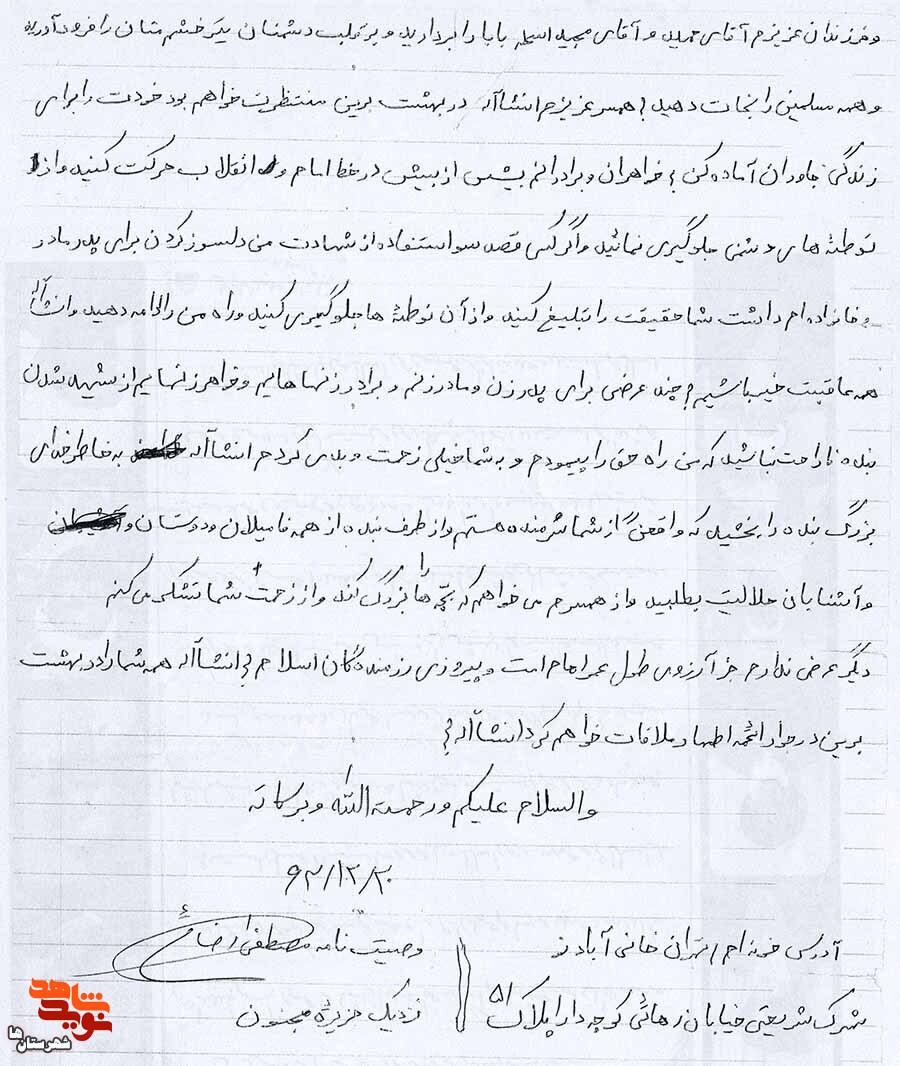 و فرزندان عزیزم آقای حمید و آقای مجید اسلحه بابا را بردارید و بر قلب دشمنان یک خشم متان را فرود آورید
و همه مسلمین را نجات دهید؟ همسر عزیزم انشاآله در بهشت برین منتظرین خواهم بود خودت را برای
زندگی جاودان آماده کن؟ خواهران و برادرانم بیشتر از پیش در خط امام و انقلاب حرکت کنید و از
توطئه های دشمنی جلوگیری نمائید و اگر کس قصد سو استفاده از شهادت من دلسوز کردن برای پدر مادر
و خانواده ام داشت شما حقیقت را تبلیغ کنید و از آن توطئه ها جلوگیری کنید و راه من را ادامه دهید و انشاآله
همه عاقبت خیر باشیم؟ چند عرضی برای پدر زن و مادر زنم و برادر زنها هایم و خواهر زنهایم از شهید شدن
بنده ناراحت نباشید که من راه حق را پیمودم و به شما خیلی زحمت و بدی کردم انشاآله به خاطر خدای
بزرگ بنده را ببخشید که واقعنً از شما شرمنده هستم و از طرف بنده از همه فامیلان و دوستان و
و آشنایان حلالیت بطلبید و از همسرم می خواهم که بچّه ها را بزرگ کند و از زحمت شما تشکر می کنم
دیگر عرض ندارم جز آرزوی طول عمر امام است و پیروزی رزمندگان اسلام؟ انشاآله همه شما را در بهشت
برین در جوار ائمه اطهار ملاقات خواهم کرد انشاآله؟
والسلام علیکم و رحمته الله و برکاته
۶۳/۱۲/۲۰
آدرس خونه ام / تهران خانی آباد نو
وصیت نامه مصطفی رضائی
شهرک شریعتی خیابان رهائی کوچه دارا پلاک ۵۱
نزدیک جزیره مجنون
نوید شاهد
شهرستان ها